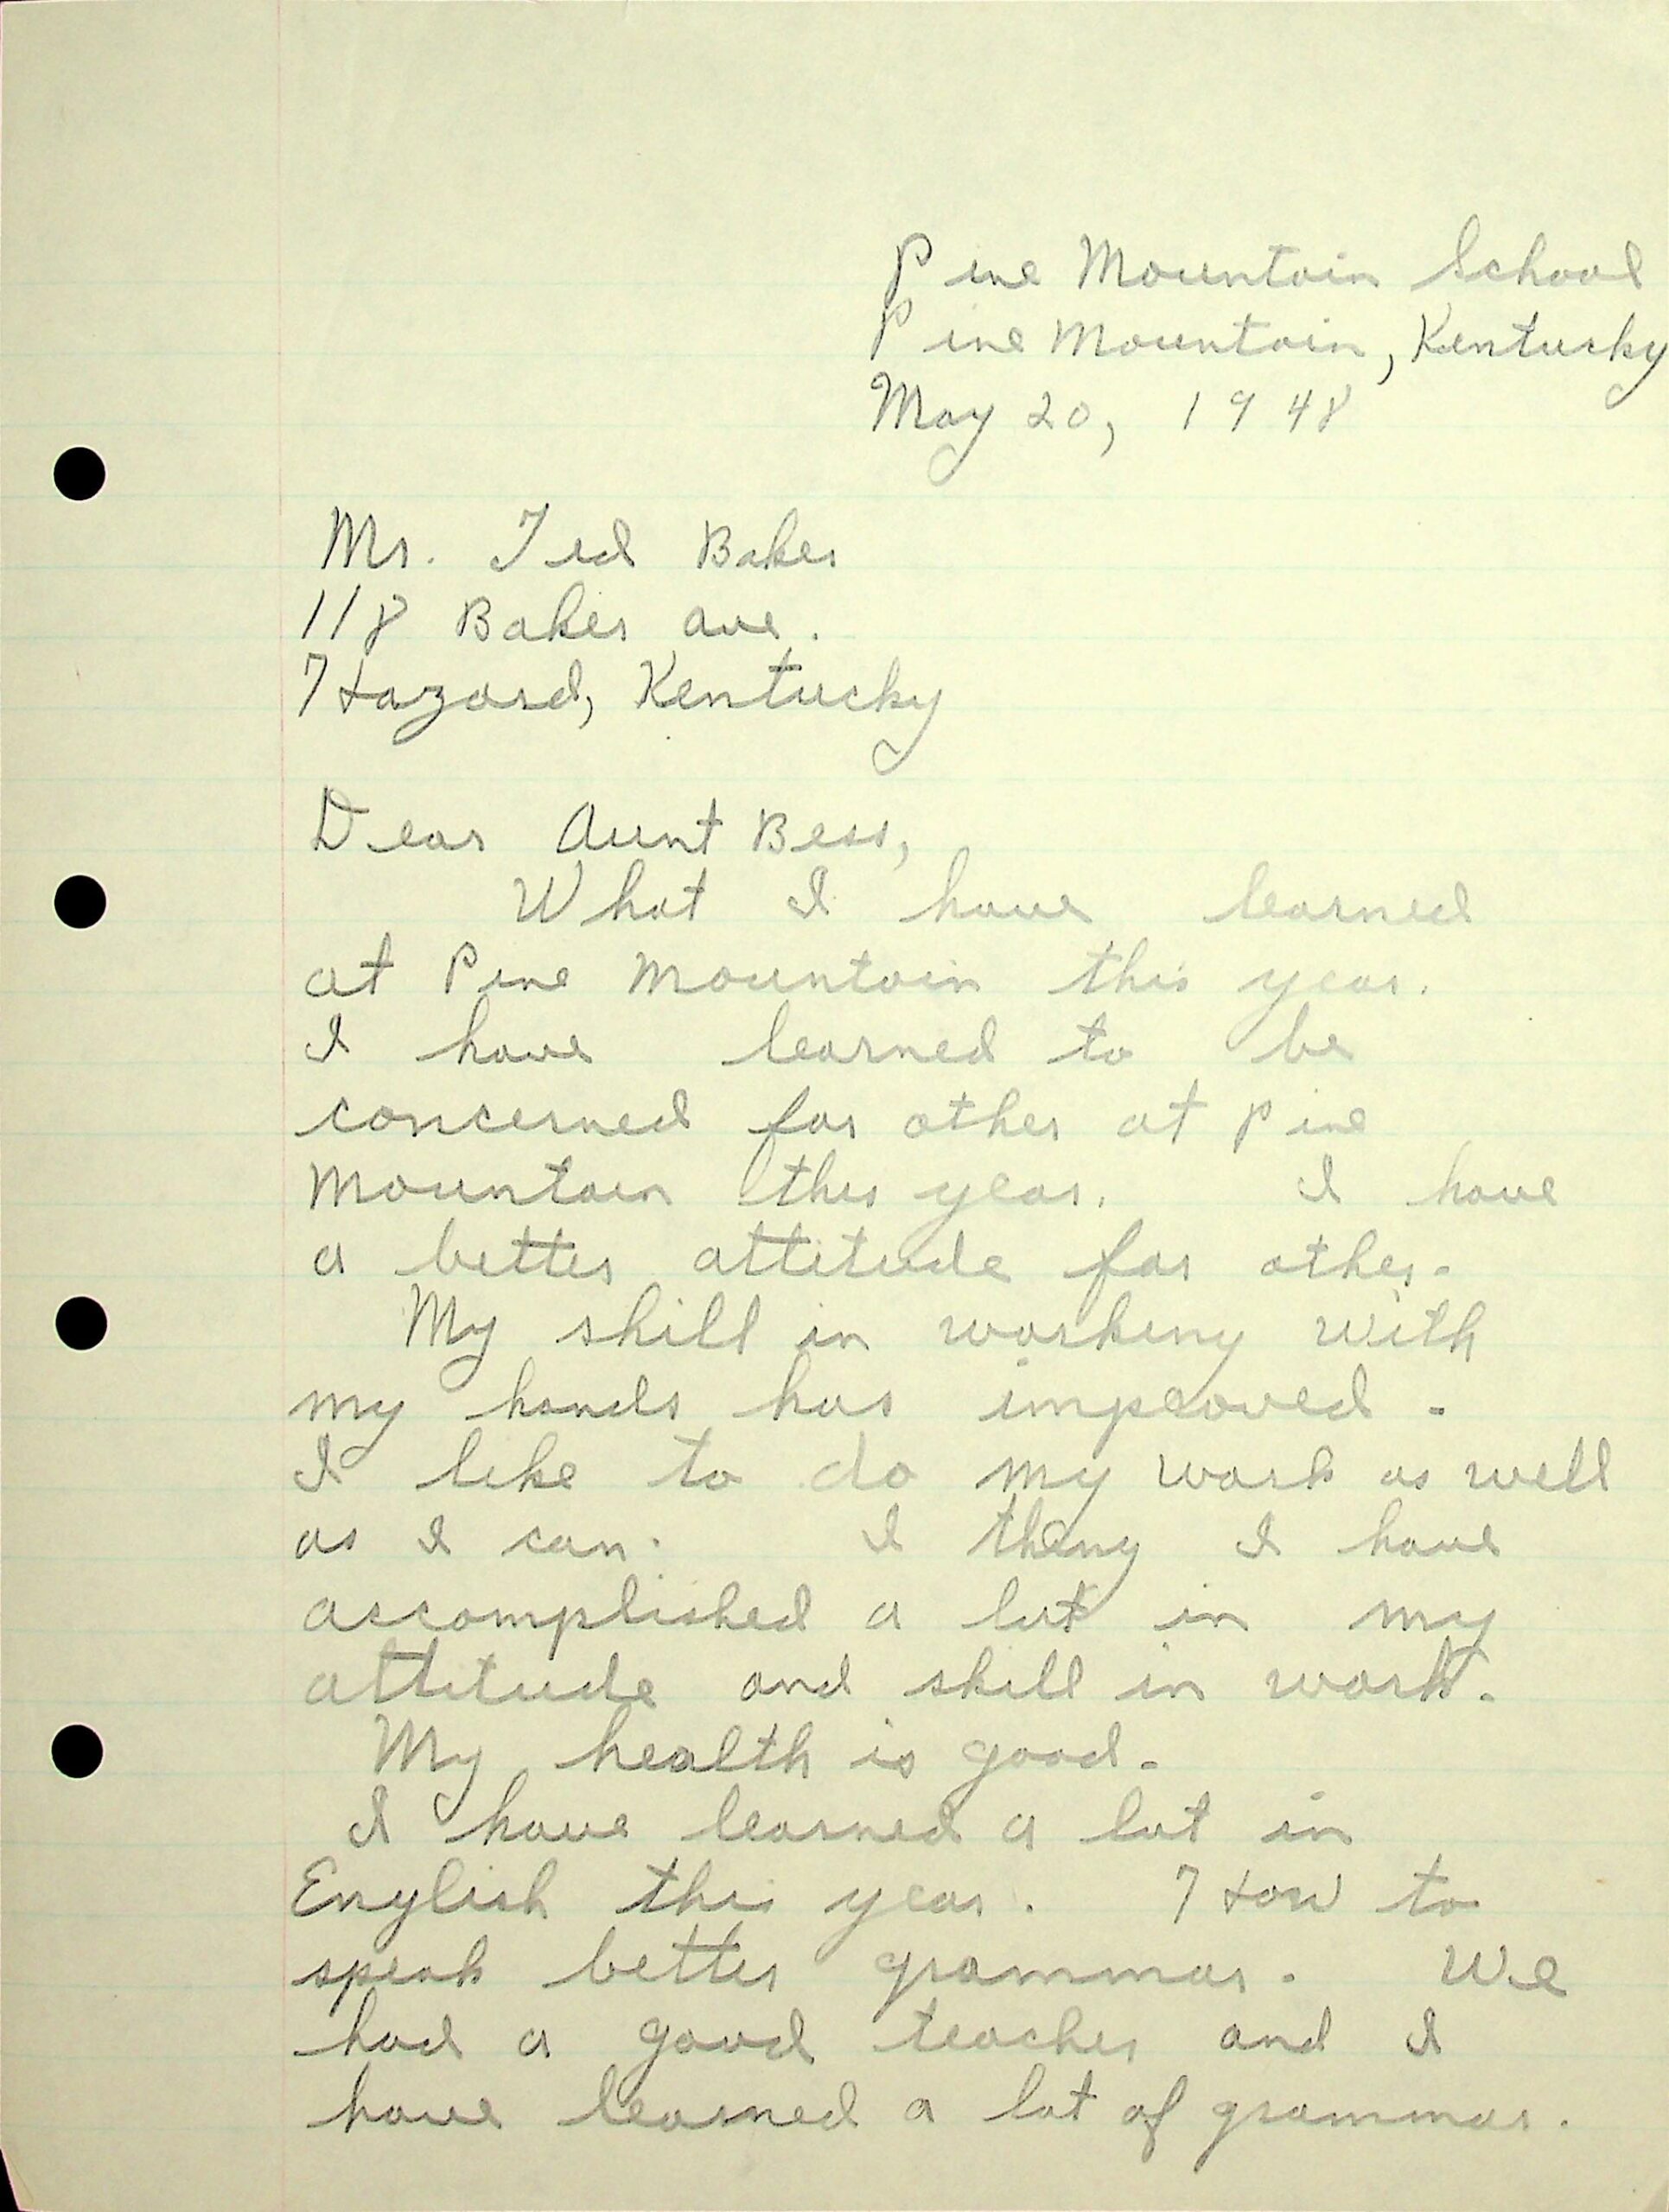 Pine Mountain School
Pine Mountain, Kentucky
May 20, 1948
Mr. Ted Baker
118 Baker Ave.
Hazard, Kentucky
Dear Aunt Bess,
What I have learned
at Pine Mountain this year.
I have learned to be
concerned for other at Pine
Mountain this year. I have
a better attitude for other.
My skill in working with
my hands has improved.
I like to do my work as well
as I can. I thing I have
accomplished a lot in my
attitude and skill in work.
My health is good.
I have learned a lot in
English this year. How to
speak better grammar. We
had a good teacher and I
have learned a lot of grammar.